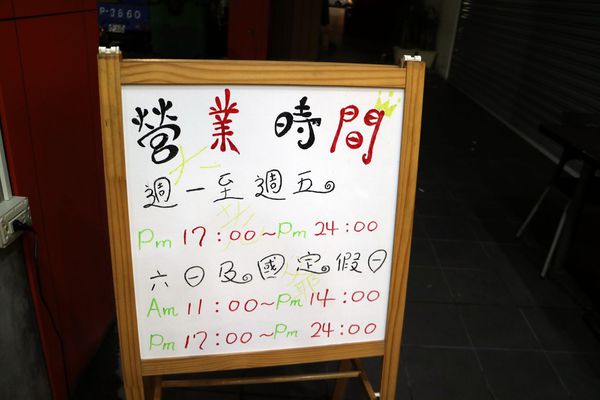 P-3660
營業時間
週一至週五
Pm 17:00~Pm 24:00
六日及國定假日
Am 11:00~Pm 14:00
Pm 17:00~Pm 24:00